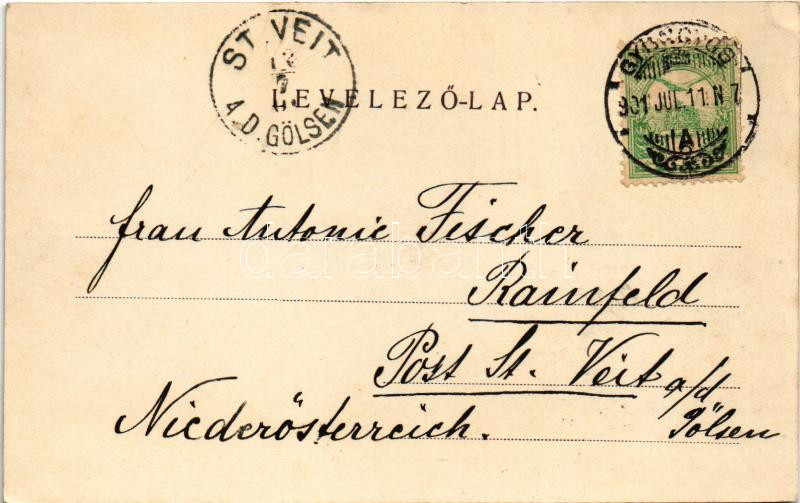 ST VEIT
12
7
A.D.GÖLSEN
LEVELEZŐ-LAP.
GYÖNGYÖS
901 JUL.11. N 7
A
frau Antonie Fischer
Rainfeld
Post St. Veit a/d
Gölsen
Niederösterreich.
darabanth